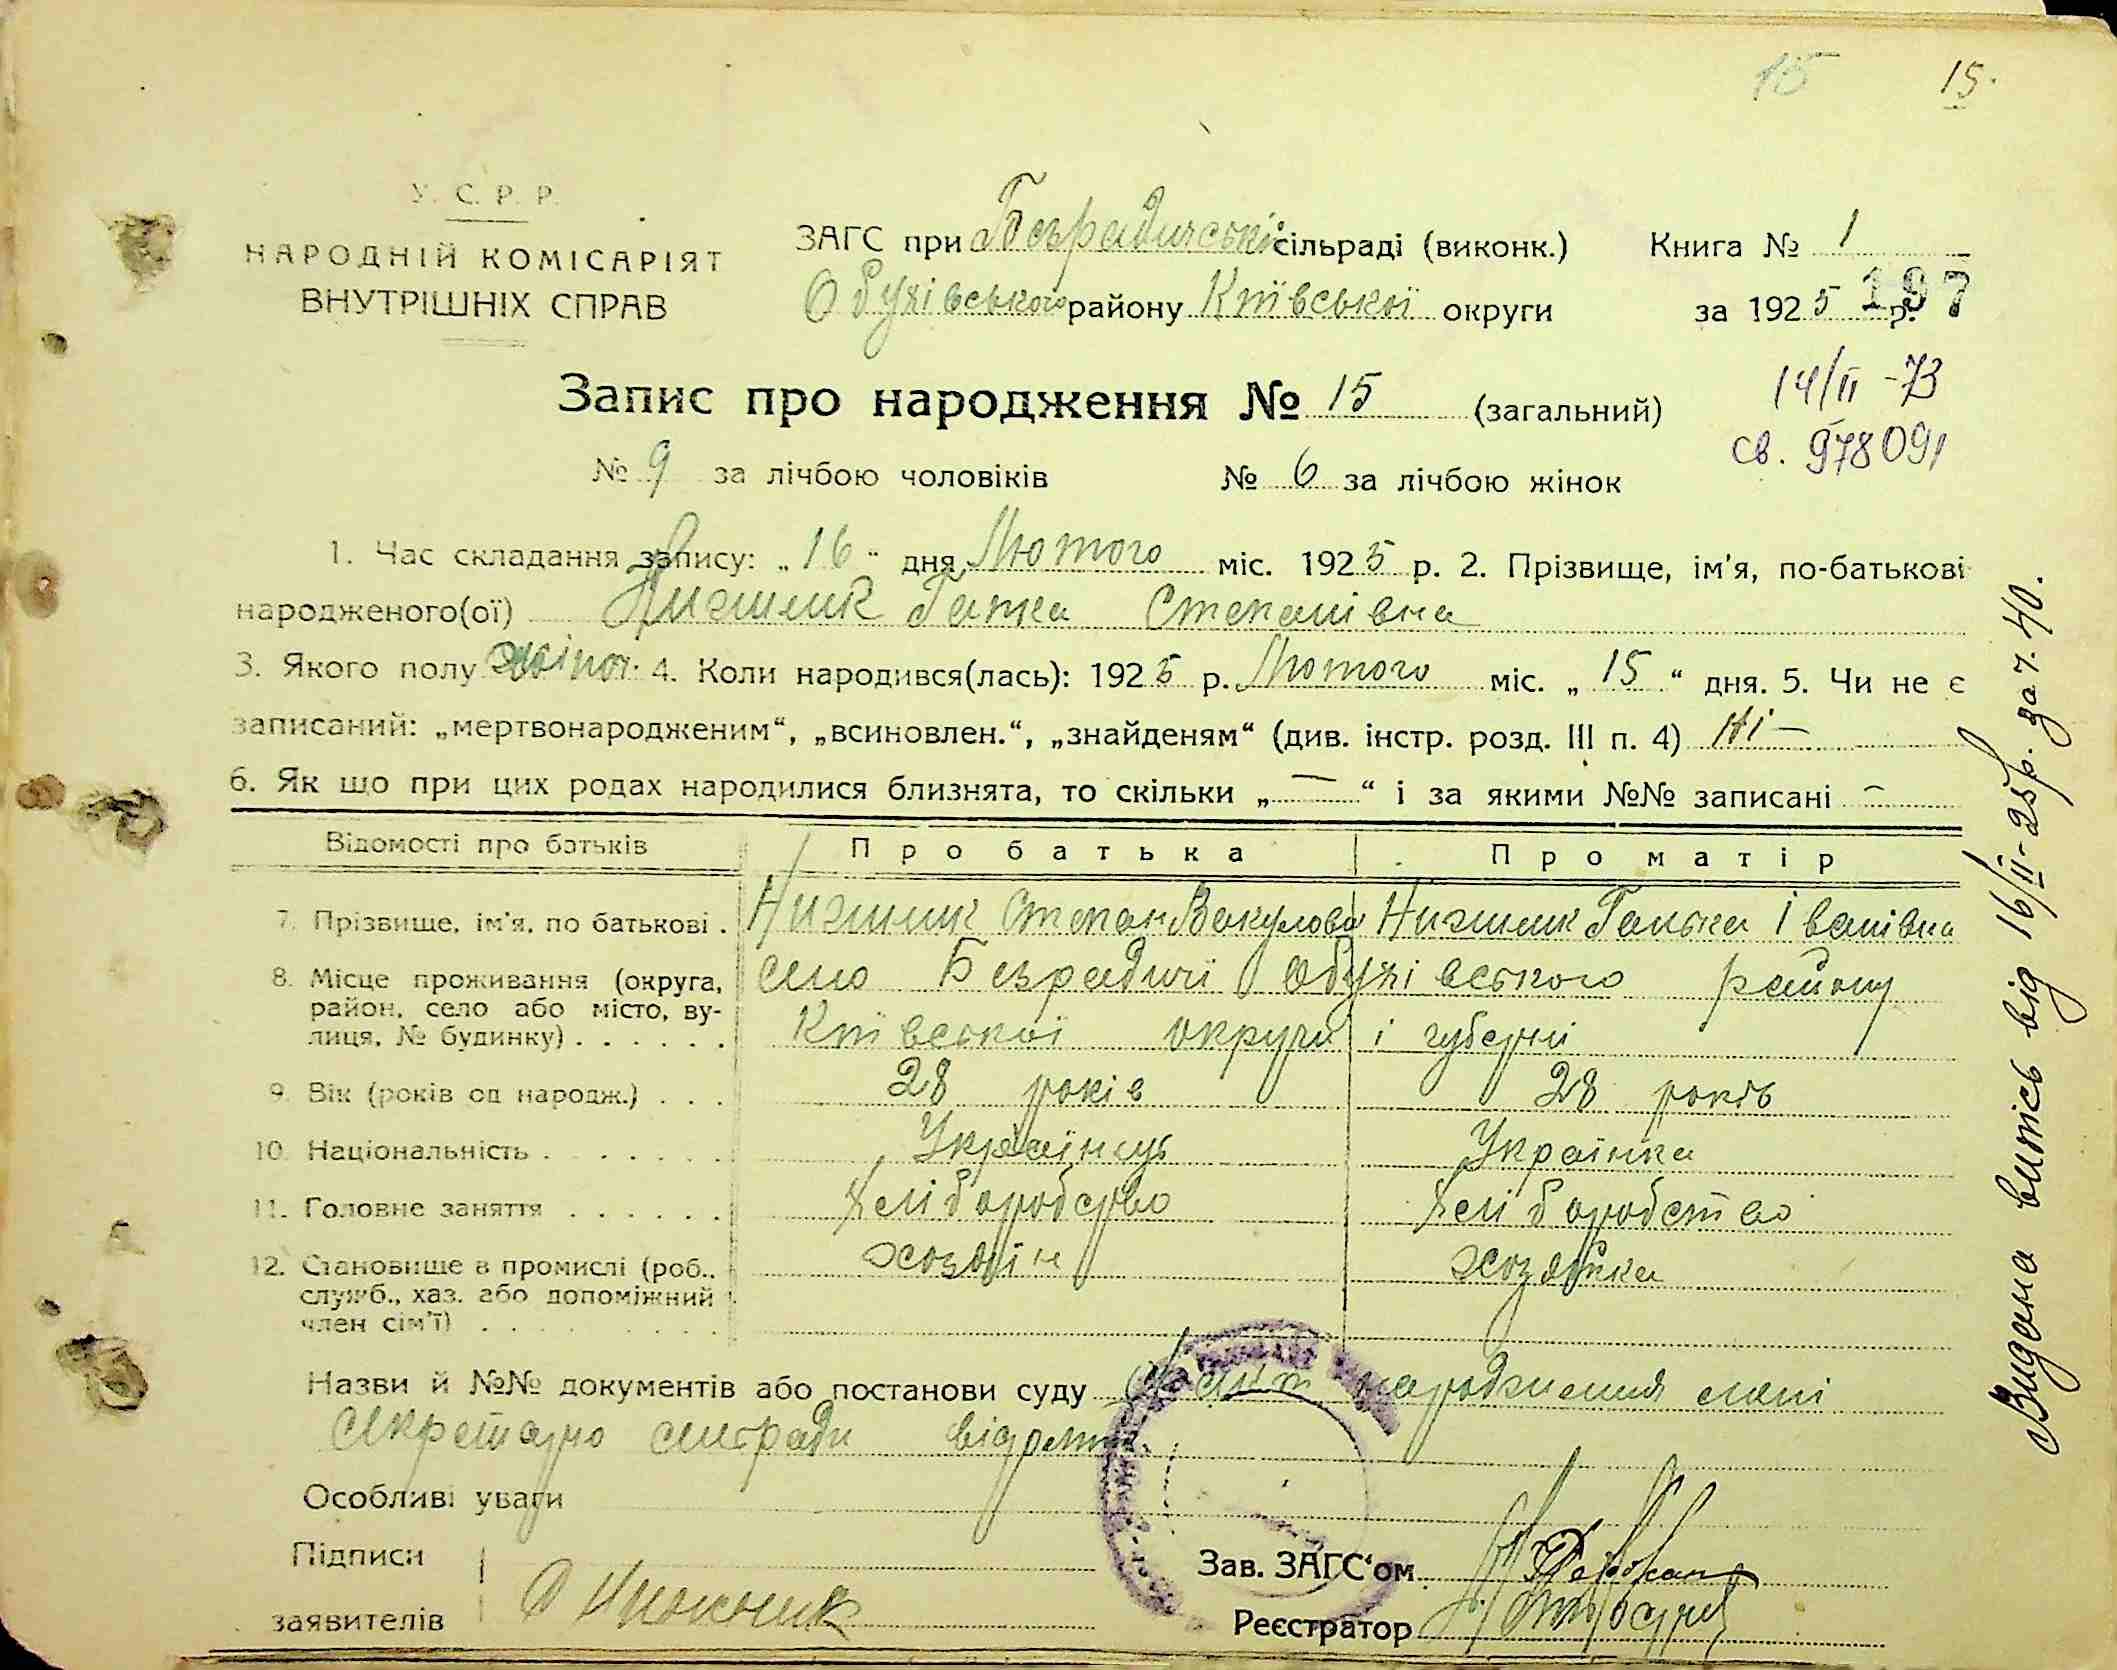 15 15.
У. С. Р. Р.
НАРОДНІЙ КОМІСАРІЯТ
ВНУТРІШНІХ СПРАВ
ЗАГС при Безрадичські сільраді (виконк.) Книга № 1
Обухівського району Київської округи за 1925 р. 197
Запис про народження № 15 (загальний)
14/II -73
св. 978091
№ 9 за лічбою чоловіків № 6 за лічбою жінок
1. Час складання запису: „16" дня Лютого міс. 1925 р. 2. Прізвище, ім'я, по-батькові
народженого(ої) Нижник Галка Степанівна
3. Якого полу жіноч. 4. Коли народився(лась): 1925 р. Лютого міс. „15" дня. 5. Чи не є
записаний: „мертвонародженим", „всиновлен.", „знайденям" (див. інстр. розд. III п. 4) ні —
6. Як що при цих родах народилися близнята, то скільки „—" і за якими №№ записані —
Відомості про батьків Про батька Про матір
7. Прізвище, ім'я, по батькові . Нижник Степан Вакулова Нижник Галька Іванівна
8. Місце проживання (округа, село Безрадичі Обухівського району
район, село або місто, ву-
лиця, № будинку) . . . . . . Київської округи і губерні
9. Вік (років од народж.) . . . 28 років 28 років
10. Національність . . . . . . . Українць Українка
11. Головне заняття . . . . . . Хліборобство Хліборобство
12. Становище в промислі (роб., хозяін хозяйка
служб., хаз. або допоміжний
член сім'ї) . . . . . . . .
Назви й №№ документів або постанови суду Факт народження мені
секретарю сільради відомий
Особливі уваги
Підписи
заявителів
Зав. ЗАГС'ом
Реєстратор
Видана випись від 16/II-25 р. за ч. 40.